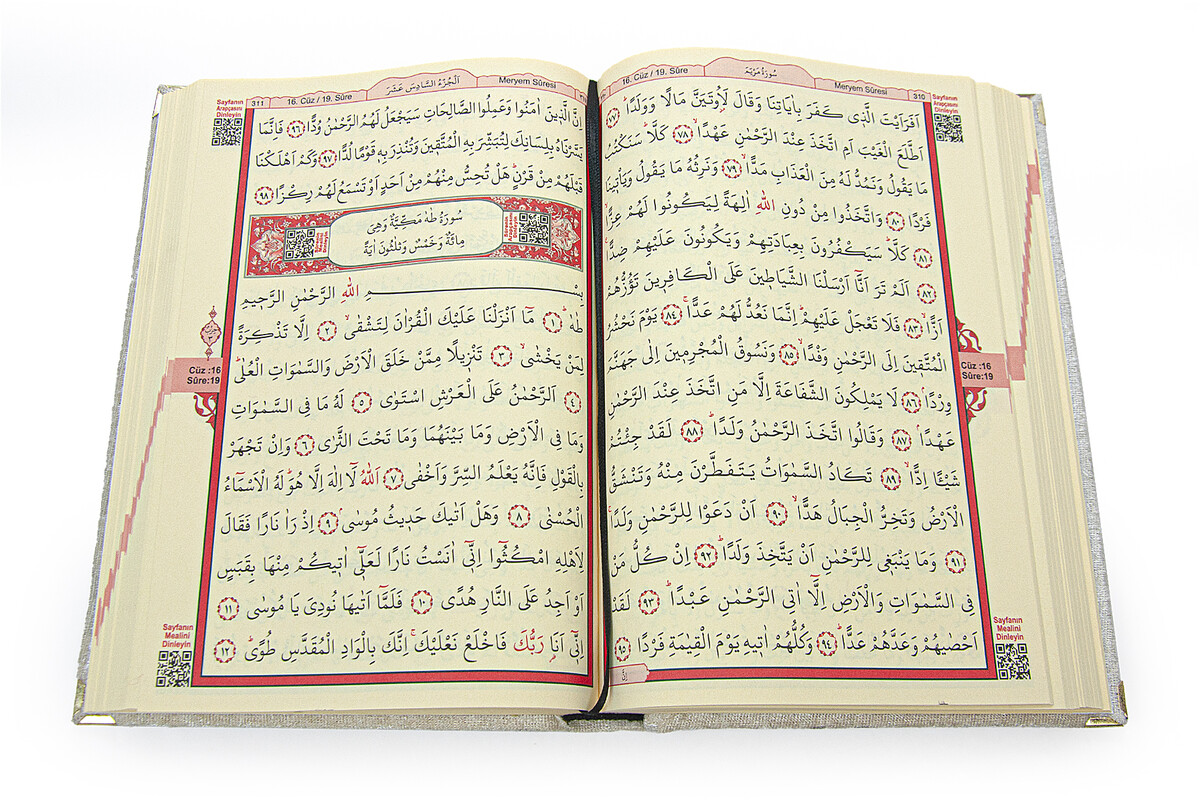 16. Cüz / 19. Sûre
سُورَةُ مَرْيَمَ
Meryem Sûresi
310
Sayfanın
Arapçasını
Dinleyin
اَفَرَاَيْتَ الَّذ۪ي كَفَرَ بِاٰيَاتِنَا وَقَالَ لَاُو۫تَيَنَّ مَالًا وَوَلَدًاۜ ﴿٧٧﴾
اَطَّلَعَ الْغَيْبَ اَمِ اتَّخَذَ عِنْدَ الرَّحْمٰنِ عَهْدًاۙ ﴿٧٨﴾ كَلَّاۜ سَنَكْتُبُ
مَا يَقُولُ وَنَمُدُّ لَهُ مِنَ الْعَذَابِ مَدًّاۙ ﴿٧٩﴾ وَنَرِثُهُ مَا يَقُولُ وَيَأْت۪ينَا
فَرْدًا ﴿٨٠﴾ وَاتَّخَذُوا مِنْ دُونِ اللّٰهِ اٰلِهَةً لِيَكُونُوا لَهُمْ عِزًّاۙ
﴿٨١﴾ كَلَّاۜ سَيَكْفُرُونَ بِعِبَادَتِهِمْ وَيَكُونُونَ عَلَيْهِمْ ضِدًّا۟
﴿٨٢﴾ اَلَمْ تَرَ اَنَّٓا اَرْسَلْنَا الشَّيَاط۪ينَ عَلَى الْكَافِر۪ينَ تَؤُزُّهُمْ
اَزًّاۙ ﴿٨٣﴾ فَلَا تَعْجَلْ عَلَيْهِمْۜ اِنَّمَا نَعُدُّ لَهُمْ عَدًّاۚ ﴿٨٤﴾ يَوْمَ نَحْشُرُ
الْمُتَّق۪ينَ اِلَى الرَّحْمٰنِ وَفْدًاۙ ﴿٨٥﴾ وَنَسُوقُ الْمُجْرِم۪ينَ اِلٰى جَهَنَّمَ
وِرْدًاۢ ﴿٨٦﴾ لَا يَمْلِكُونَ الشَّفَاعَةَ اِلَّا مَنِ اتَّخَذَ عِنْدَ الرَّحْمٰنِ
عَهْدًاۢ ﴿٨٧﴾ وَقَالُوا اتَّخَذَ الرَّحْمٰنُ وَلَدًاۜ ﴿٨٨﴾ لَقَدْ جِئْتُمْ
شَيْـًٔا اِدًّاۙ ﴿٨٩﴾ تَكَادُ السَّمٰوَاتُ يَتَفَطَّرْنَ مِنْهُ وَتَنْشَقُّ
الْاَرْضُ وَتَخِرُّ الْجِبَالُ هَدًّاۙ ﴿٩٠﴾ اَنْ دَعَوْا لِلرَّحْمٰنِ وَلَدًاۚ
﴿٩١﴾ وَمَا يَنْبَغ۪ي لِلرَّحْمٰنِ اَنْ يَتَّخِذَ وَلَدًاۜ ﴿٩٢﴾ اِنْ كُلُّ مَنْ
فِي السَّمٰوَاتِ وَالْاَرْضِ اِلَّٓا اٰتِي الرَّحْمٰنِ عَبْدًاۜ ﴿٩٣﴾ لَقَدْ
اَحْصٰيهُمْ وَعَدَّهُمْ عَدًّاۜ ﴿٩٤﴾ وَكُلُّهُمْ اٰت۪يهِ يَوْمَ الْقِيٰمَةِ فَرْدًا ﴿٩٥﴾
اِنَّ
Cüz :16
Sûre:19
Sayfanın
Mealini
Dinleyin
311
16. Cüz / 19. Sûre
اَلْجُزْءُ السَّادِسُ عَشَرَ
Meryem Sûresi
Sayfanın
Arapçasını
Dinleyin
اِنَّ الَّذ۪ينَ اٰمَنُوا وَعَمِلُوا الصَّالِحَاتِ سَيَجْعَلُ لَهُمُ الرَّحْمٰنُ وُدًّا ﴿٩٦﴾ فَاِنَّمَا
يَسَّرْنَاهُ بِلِسَانِكَ لِتُبَشِّرَ بِهِ الْمُتَّق۪ينَ وَتُنْذِرَ بِه۪ قَوْمًا لُدًّا ﴿٩٧﴾ وَكَمْ اَهْلَكْنَا
قَبْلَهُمْ مِنْ قَرْنٍۜ هَلْ تُحِسُّ مِنْهُمْ مِنْ اَحَدٍ اَوْ تَسْمَعُ لَهُمْ رِكْزًا ﴿٩٨﴾
سُورَةُ طٰهٰ مَكِّيَّةٌ وَهِيَ
مِائَةٌ وَخَمْسٌ وَثَلٰثُونَ اٰيَةً
بِسْمِ اللّٰهِ الرَّحْمٰنِ الرَّح۪يمِ
طٰهٰۜ ﴿١﴾ مَٓا اَنْزَلْنَا عَلَيْكَ الْقُرْاٰنَ لِتَشْقٰىۙ ﴿٢﴾ اِلَّا تَذْكِرَةً
لِمَنْ يَخْشٰىۙ ﴿٣﴾ تَنْز۪يلًا مِمَّنْ خَلَقَ الْاَرْضَ وَالسَّمٰوَاتِ الْعُلٰىۜ
﴿٤﴾ اَلرَّحْمٰنُ عَلَى الْعَرْشِ اسْتَوٰى ﴿٥﴾ لَهُ مَا فِي السَّمٰوَاتِ
وَمَا فِي الْاَرْضِ وَمَا بَيْنَهُمَا وَمَا تَحْتَ الثَّرٰى ﴿٦﴾ وَاِنْ تَجْهَرْ
بِالْقَوْلِ فَاِنَّهُ يَعْلَمُ السِّرَّ وَاَخْفٰى ﴿٧﴾ اَللّٰهُ لَٓا اِلٰهَ اِلَّا هُوَۜ لَهُ الْاَسْمَٓاءُ
الْحُسْنٰى ﴿٨﴾ وَهَلْ اَتٰيكَ حَد۪يثُ مُوسٰىۢ ﴿٩﴾ اِذْ رَاٰ نَارًا فَقَالَ
لِاَهْلِهِ امْكُثُٓوا اِنّ۪ٓي اٰنَسْتُ نَارًا لَعَلّ۪ٓي اٰت۪يكُمْ مِنْهَا بِقَبَسٍ
اَوْ اَجِدُ عَلَى النَّارِ هُدًى ﴿١٠﴾ فَلَمَّٓا اَتٰيهَا نُودِيَ يَا مُوسٰى ﴿١١﴾
اِنّ۪ٓي اَنَا۬ رَبُّكَ فَاخْلَعْ نَعْلَيْكَۚ اِنَّكَ بِالْوَادِ الْمُقَدَّسِ طُوًىۜ ﴿١٢﴾
Cüz :16
Sûre:19
Sayfanın
Mealini
Dinleyin